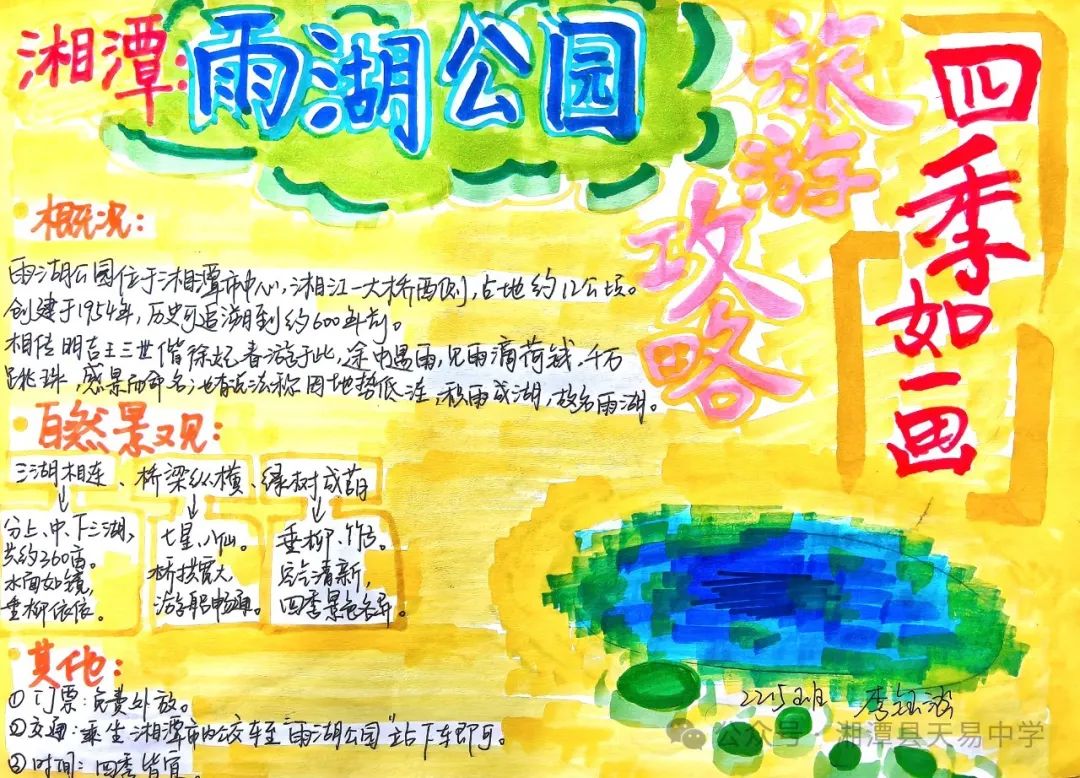 湘潭:雨湖公园
旅游
攻略
四季如画
概况:
雨湖公园位于湘潭市中心,湘江一大桥西侧,占地约12公顷。
创建于1954年,历史可追溯到约600年前。
相传明吉王三世偕徐妃春游于此,途中遇雨,见雨滴荷钱,千万
跳珠,感景而命名;也有说法称因地势低洼,积雨成湖,故名雨湖。
自然景观:
三湖相连、桥梁纵横、绿树成荫
分上、中、下三湖,
共约360亩。
水面如镜,
垂柳依依。
七星、八仙。
桥拱宽大,
游船畅通。
垂柳、竹
清新,
四季景色各异。
其他:
①门票:免费外放。
②交通:乘坐湘潭市内公交车至“雨湖公园”站下车即可。
③时间:四季皆宜。
2215班 李钰涵
公众号·湘潭县天易中学